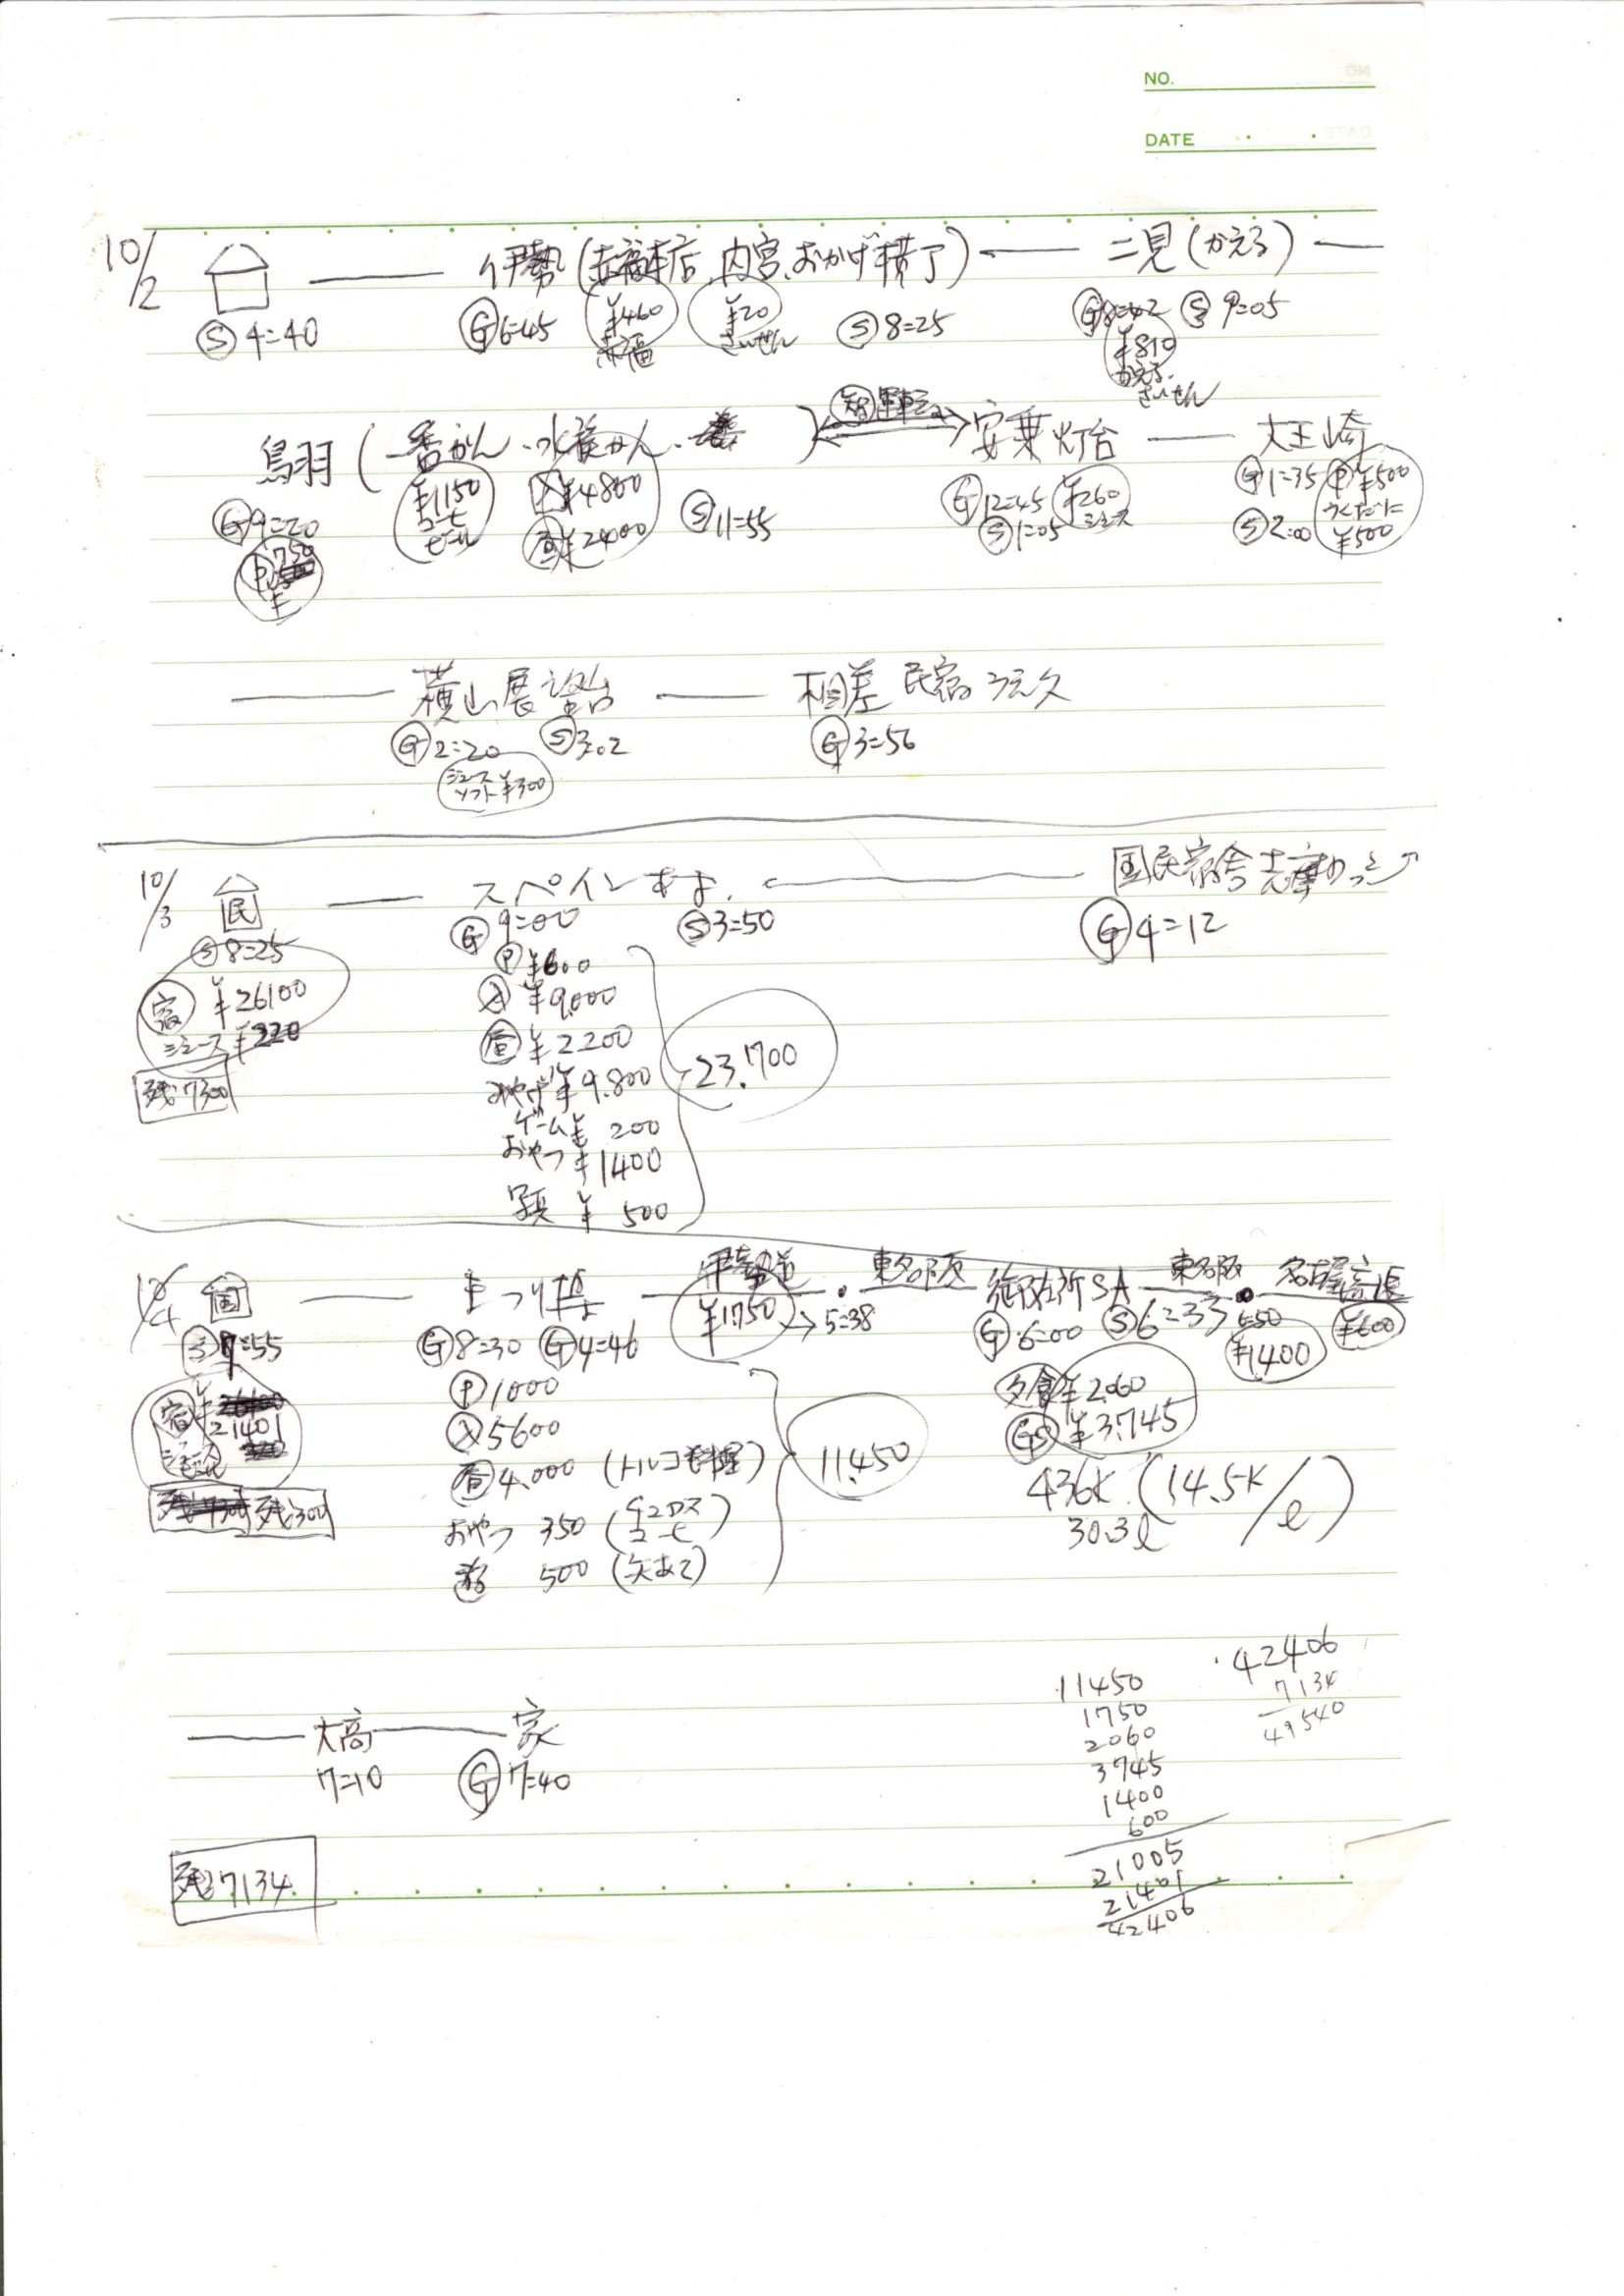 NO.
DATE
10/2 伊勢(赤福本店、内宮、おかげ横丁) 二見(かえる)
Ⓢ4=40 Ⓖ6=45 ¥460 ¥20 Ⓢ8=25 Ⓖ8=42 Ⓢ9=05
赤福 さいせん ¥810
かえる、
さいせん
鳥羽(一番かん、水族かん、 ) 運転 安乗灯台 大王崎
Ⓖ9=20 ¥1150 Ⓧ¥4800 Ⓢ11=55 Ⓖ12=45 ¥260 Ⓖ1=35 Ⓟ¥500
Ⓟ750 コーヒ 昼¥2400 Ⓢ1=05 ジュース Ⓢ2=00 ¥500
¥ ビール
横山展望台 相差 民宿
Ⓖ2=20 Ⓢ3.2 Ⓖ3=56
ジュース
ソフト¥300
10/3 民 スペインむら 国民宿舎 志摩
Ⓢ8=25 Ⓖ9=00 Ⓢ3=50 Ⓖ4=12
宿 ¥26100 Ⓟ¥600
ジュース¥220 Ⓧ¥9,000
残7300 昼¥2200
みやげ¥9.800 23.700
ゲーム¥200
おやつ¥1400
写真¥500
10/4 国 まつり博 伊勢道 東名阪 御在所SA 東名阪 名古屋高速
Ⓢ7=55 Ⓖ8=30 Ⓖ4=46 ¥1750→5=38 Ⓖ6=00 Ⓢ6=33 6=50 ¥600
¥1400
宿¥21401 Ⓟ1000 夕食¥2060
Ⓧ5600 GS ¥3.745
昼4.000(トルコ料理) 11.450 436K(14.5K/ℓ)
残300 おやつ 350(チュロス コーヒ) 30.3ℓ
500(矢あて)
大高 家
7=10 Ⓖ7=40
残7134
11450
1750
2060
3745
1400
600
21005
21401
42406
42406
7134
49540